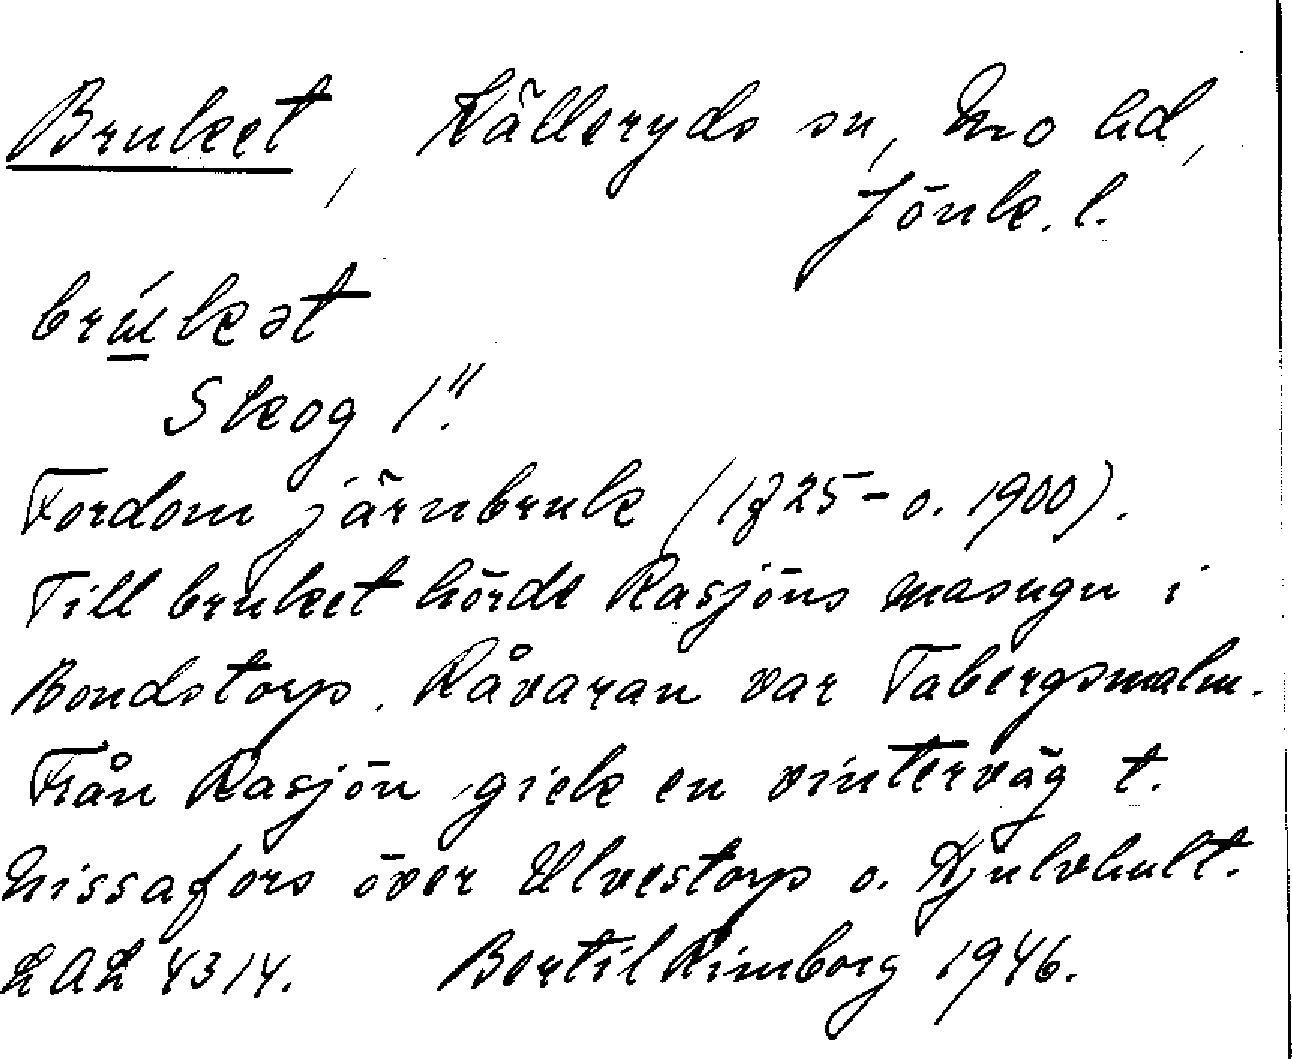 Bruket, Källeryds sn, Mo hd,
Jönk. l.
brɯ́kət
Skog 1".
Fordom järnbruk (1725- o. 1900).
Till bruket hörde Rasjöns masugn i
Bondstorp. Råvaran var Tabergsmalm.
Från Rasjön gick en vinterväg t.
Nissafors över Ulvestorp o. Kjulvhult.
LAL 4314. Bertil Rimborg 1946.